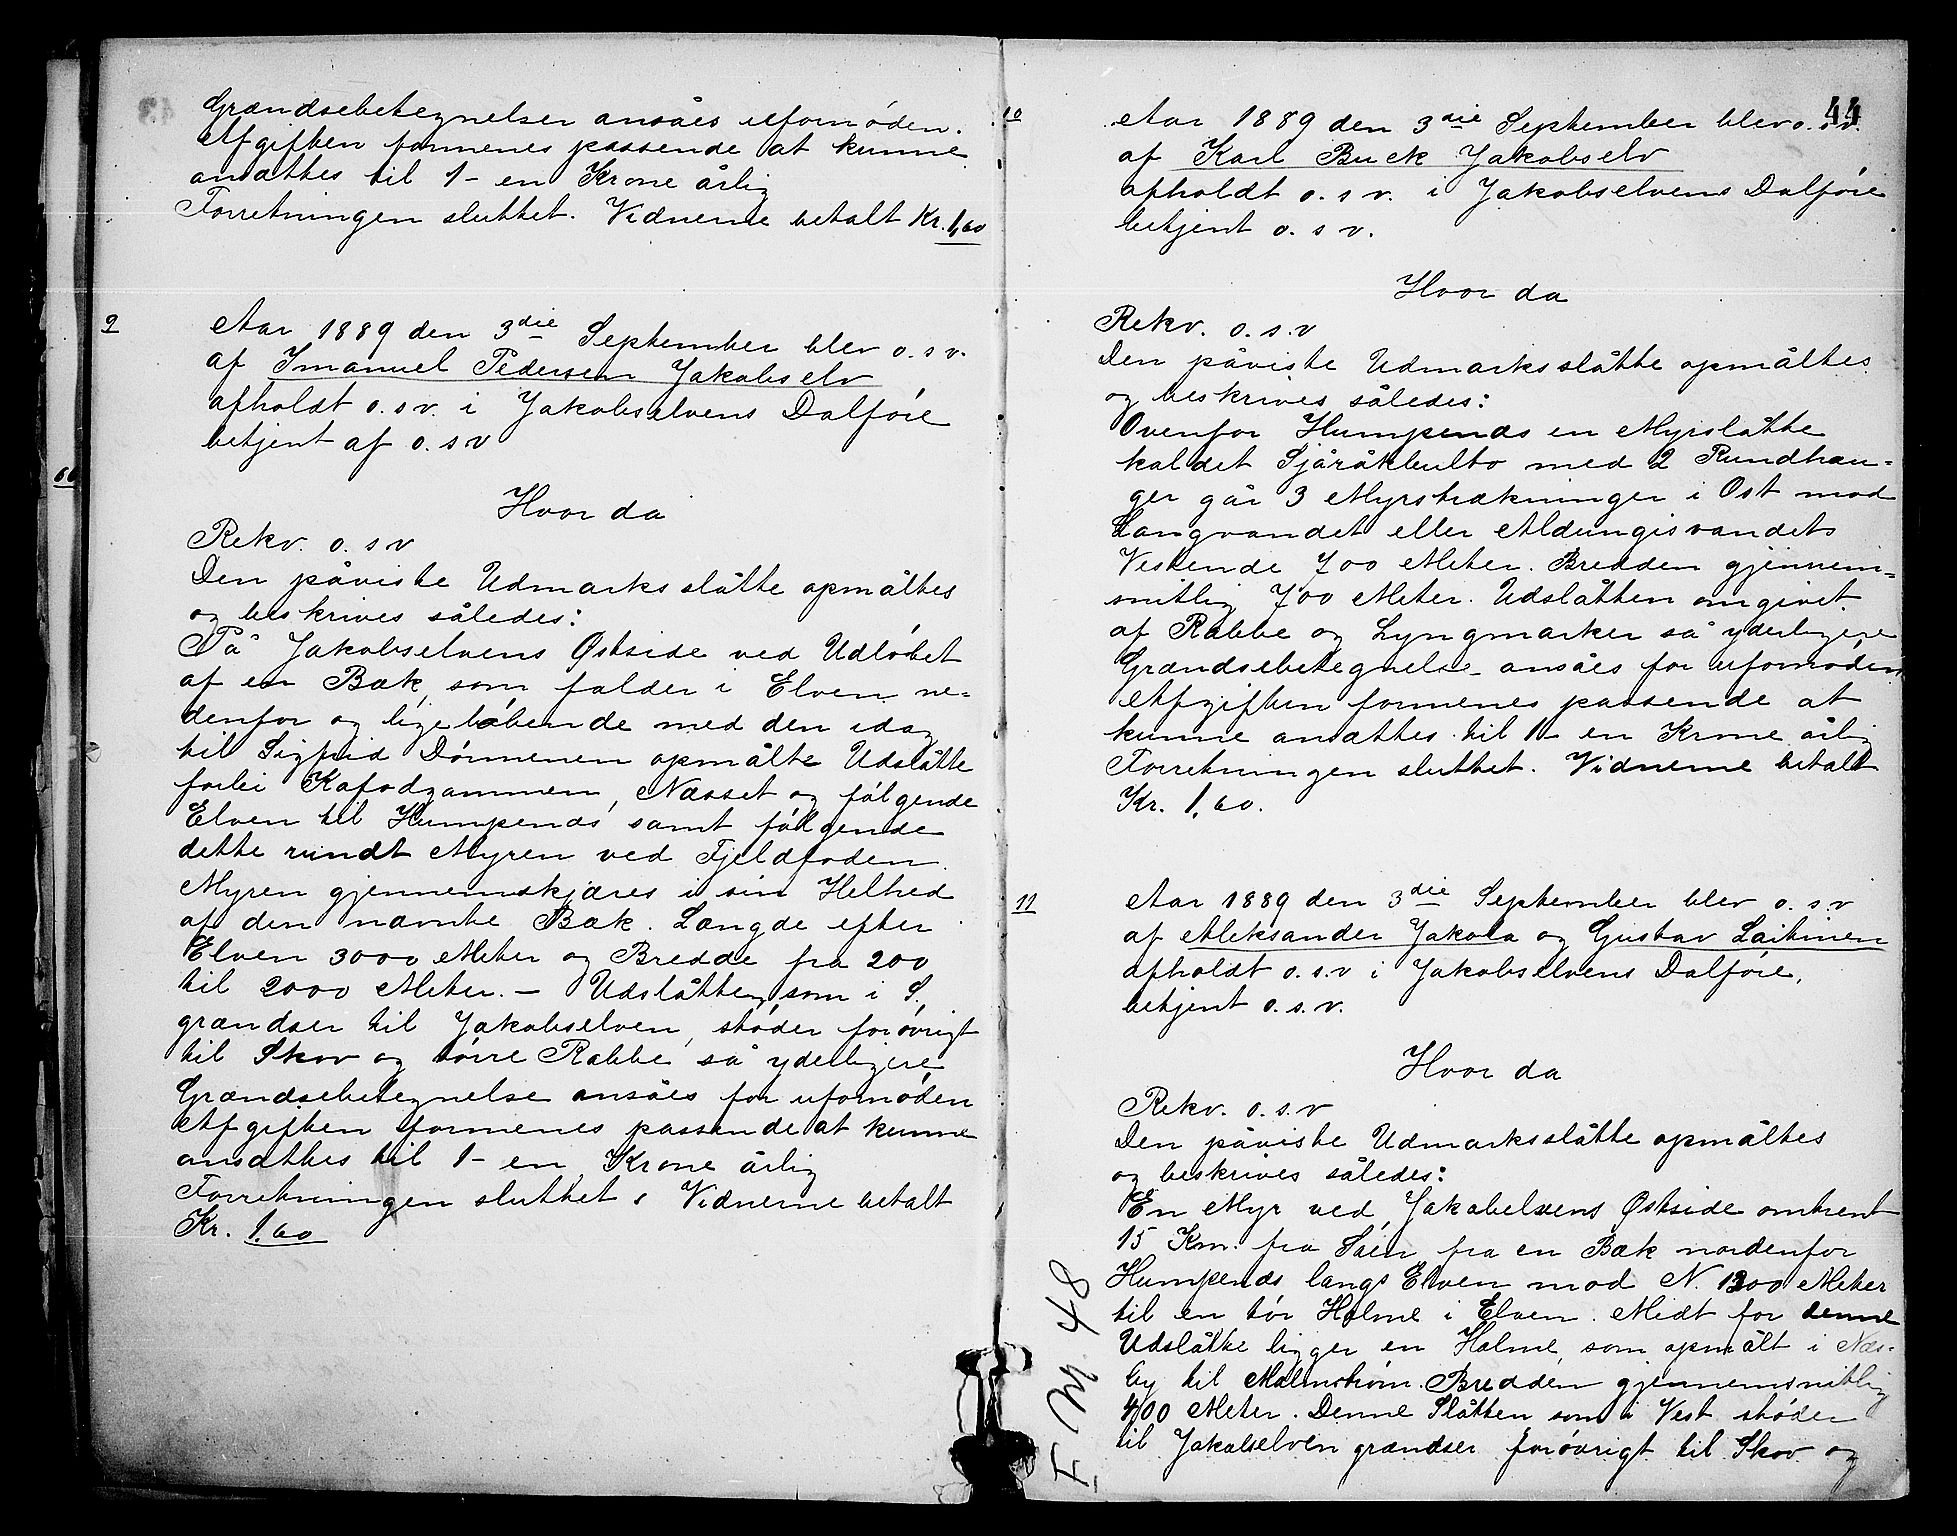 Grændsebetegnelser ansåes ufornøden.
Afgiften formenes passende at kunne
ansættes til 1- en Krone årlig
Forretningen sluttet. Vidnerne betalt Kr. 1,60
9
Aar 1889 den 3die September blev o. s v.
af Imanuel Pedersen Jakobselv
afholdt o. s v. i Jakobselvens Dalføre
betjent af o. s v
Hvor da
Rekv. o. s v
Den påviste Udmarksslåtte opmåltes
og beskrives således:
På Jakobselvens Østside ved Udløbet
af en Bæk, som falder i Elven ne-
denfor og ligeløbende med den idag
til Sigfrid Dørmenen opmålte Udslåtte
forbi Kafodgammen, Næsset og følgende
Elven til Humpenäs samt følgende
dette rundt Myren ved Fjeldfoden
Myren gjennemskjæres i sin Helhed
af den nævnte Bæk. Længde efter
Elven 3000 Meter og Bredde fra 200
til 2000 Meter. – Udslåtten, som i S.
grændser til Jakobselven, støder forøvrigt
til Skov og tørre Rabbe, så yderligere
Grændsebetegnelse ansåes for ufornøden
Afgiften formenes passende at kunne
ansættes til 1- en Krone årlig
Forretningen sluttet. Vidnerne betalt
Kr. 1.60
44
10
Aar 1889 den 3die September blev o. s v.
af Karl Buck Jakobselv
afholdt o. s v. i Jakobselvens Dalføre
betjent o. s v.
Hvor da
Rekv. o. s. v
Den påviste Udmarksslåtte opmåltes
og beskrives således:
Ovenfor Humpenäs en Myrslåtte
kaldet Sjåråkbulto med 2 Rundhau-
ger går 3 Myrstrækninger i Ost mod
Langvandet eller Aldungisvandets
Vestende 700 Meter. Bredden gjennem-
snitlig 700 Meter. Udslåtten omgivet
af Rabbe og Lyngmarker så yderligere
Grændsebetegnelse ansåes for ufornøden
Afgiften formenes passende at
kunne ansættes til 1- en Krone årlig
Forretningen sluttet. Vidnerne betalt
Kr. 1,60.
11
Aar 1889 den 3die September blev o. s. v
af Aleksander Jakola og Gustav Laitinen
afholdt o. s. v i Jakobselvens Dalføre,
betjent o. s. v.
Hvor da
Rekv. o. s. v
Den påviste Udmarksslåtte opmåltes
og beskrives således:
En Myr ved Jakobelvens Østside omtrent
15 Km. fra Søen fra en Bæk nordenfor
Humpenäs langs Elven mod N. 1300 Meter
til en tør Holme i Elven. Midt for denne
Udslåtte ligger en Holme, som opmålt i Næs-
by til Malmstrøm. Bredden gjennemsnitlig
400 Meter. Denne Slåtten som i Vest støder
til Jakobselven grændser forøvrigt til Skov og
F M 48